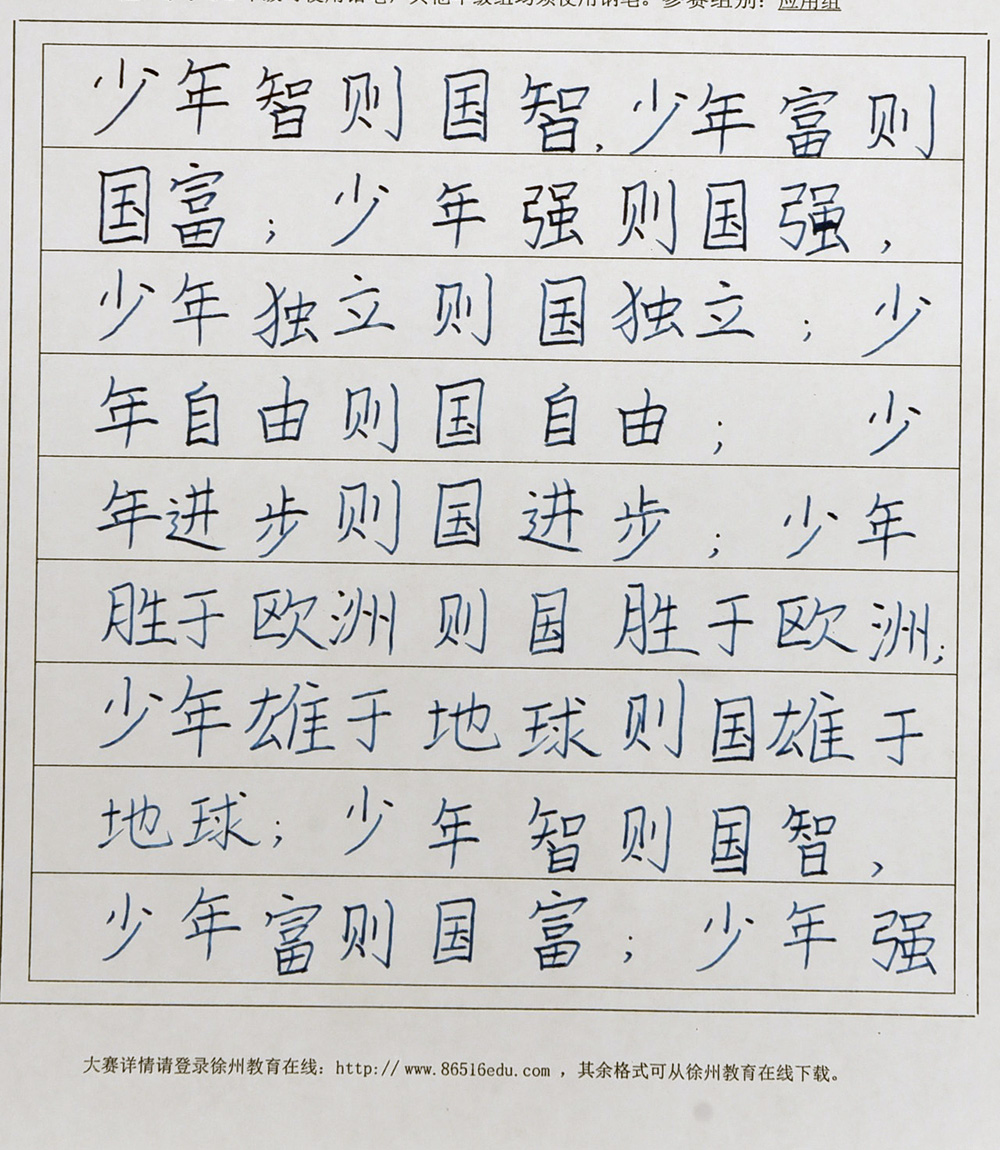 级可使用铅笔，其他年级组均须使用钢笔。参赛组别：应用组
少年智则国智,少年富则
国富；少年强则国强，
少年独立则国独立；少
年自由则国自由；少
年进步则国进步；少年
胜于欧洲则国胜于欧洲；
少年雄于地球则国雄于
地球；少年智则国智，
少年富则国富；少年强
大赛详情请登录徐州教育在线：http://www.86516edu.com，其余格式可从徐州教育在线下载。